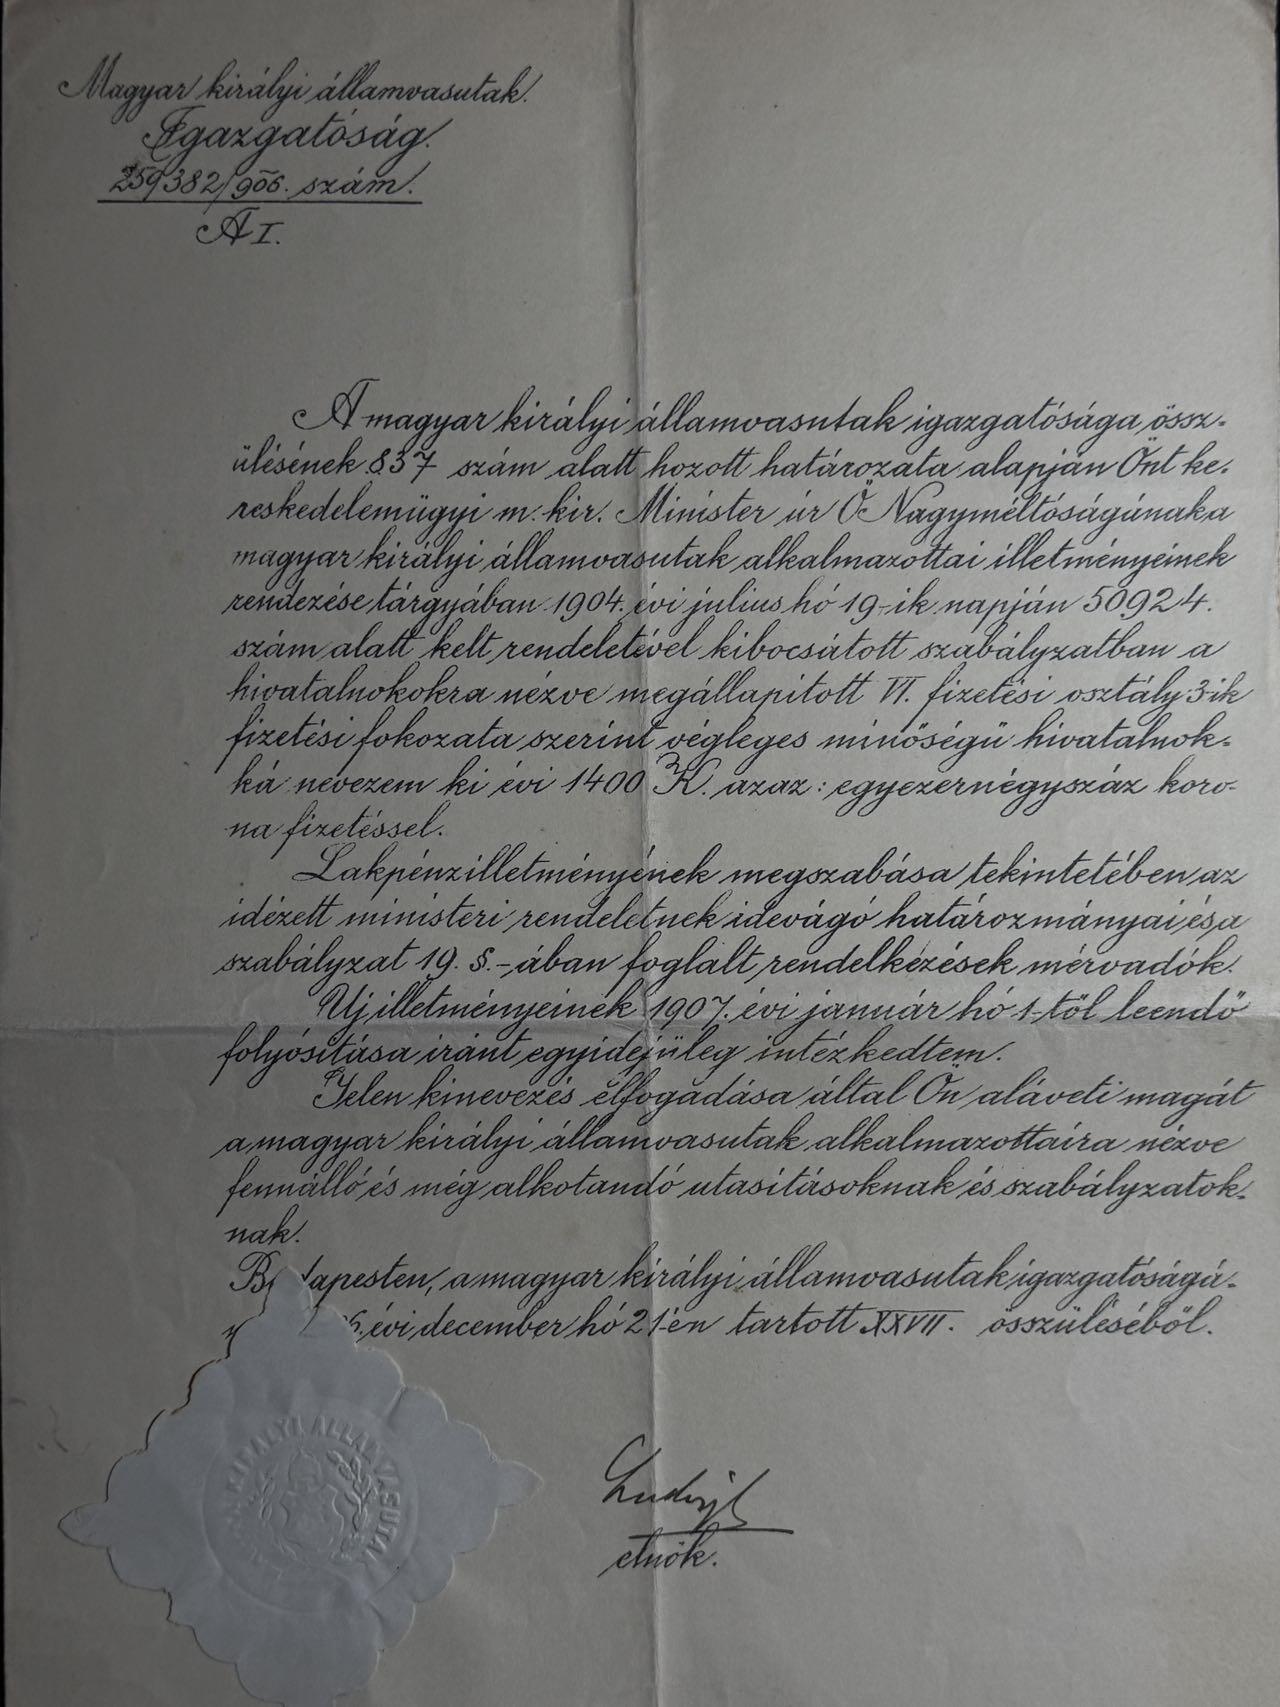 Magyar királyi államvasutak.
Igazgatóság.
259382/906. szám.
A I.
A magyar királyi államvasutak igazgatósága össz-
ülésének 837 szám alatt hozott határozata alapján Önt ke-
reskedelemügyi m. kir. Minister úr Ő Nagyméltóságának a
magyar királyi államvasutak alkalmazottai illetményeinek
rendezése tárgyában 1904. évi julius hó 19-ik napján 50924.
szám alatt kelt rendeletével kibocsátott szabályzatban a
hivatalnokokra nézve megállapitott VI. fizetési osztály 3-ik
fizetési fokozata szerint végleges minőségű hivatalnok-
ká nevezem ki évi 1400 K. azaz: egyezernégyszáz koro-
na fizetéssel.
Lakpénzilletményének megszabása tekintetében az
idézett ministeri rendeletnek idevágó határozmányai és a
szabályzat 19. §.-ában foglalt rendelkezések mérvadók.
Uj illetményeinek 1907. évi január hó 1-től leendő
folyósitása iránt egyidejüleg intézkedtem.
Jelen kinevezés elfogadása által Ön aláveti magát
a magyar királyi államvasutak alkalmazottaira nézve
fennálló és még alkotandó utasitásoknak és szabályzatok-
nak.
Budapesten, a magyar királyi államvasutak igazgatóságá-
6. évi december hó 21-én tartott XXVII. összüléséből.
KIRÁLYI ÁLLAMVASUTAK
Ludvigh
elnök.